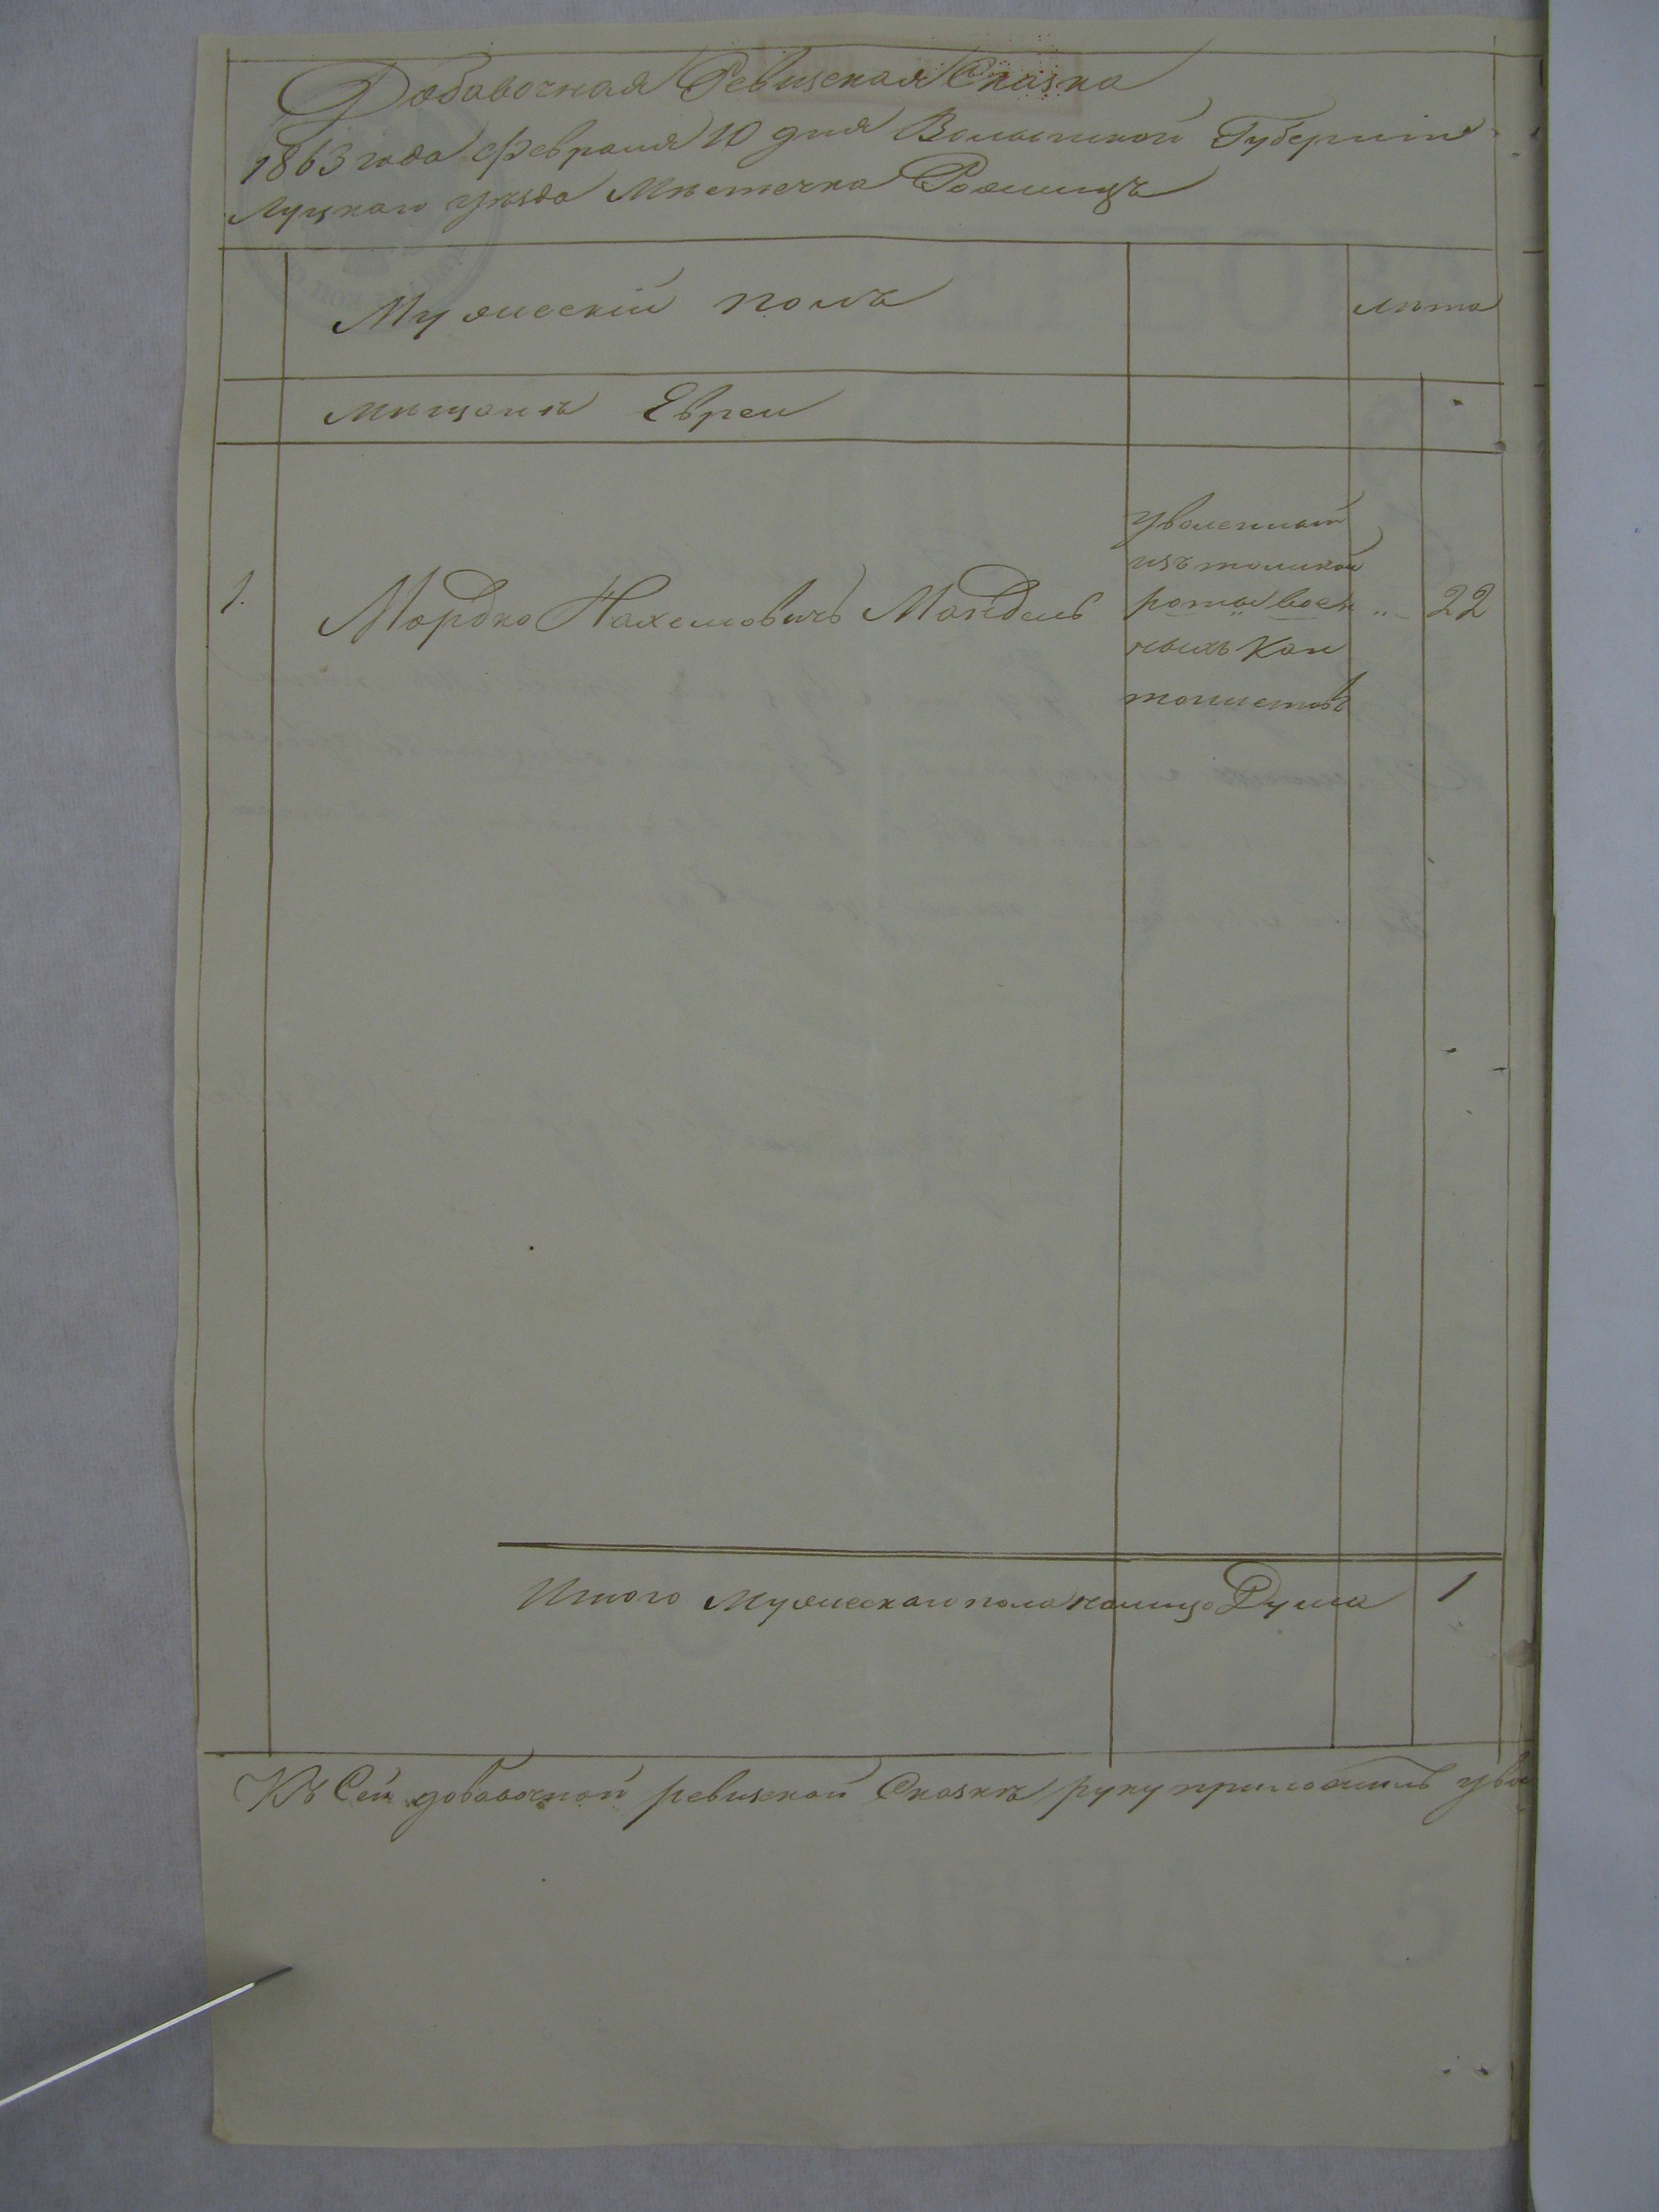 Добавочная Ревизская Сказка
1863 года февраля 10 дня Волынской Губерніи
Луцкаго уѣзда Мѣстечка Рожищъ
Мужескій полъ
лѣта
Мѣщанѣ Евреи
1.
Мордко Нахемовичъ Мандель
уволенный
изъ
роты воен
ныхъ Кан
тонистовъ
22
Итого Мужескаго пола налицо Душа 1
Къ Сей добавочной ревизской Сказкѣ руку приложилъ уво